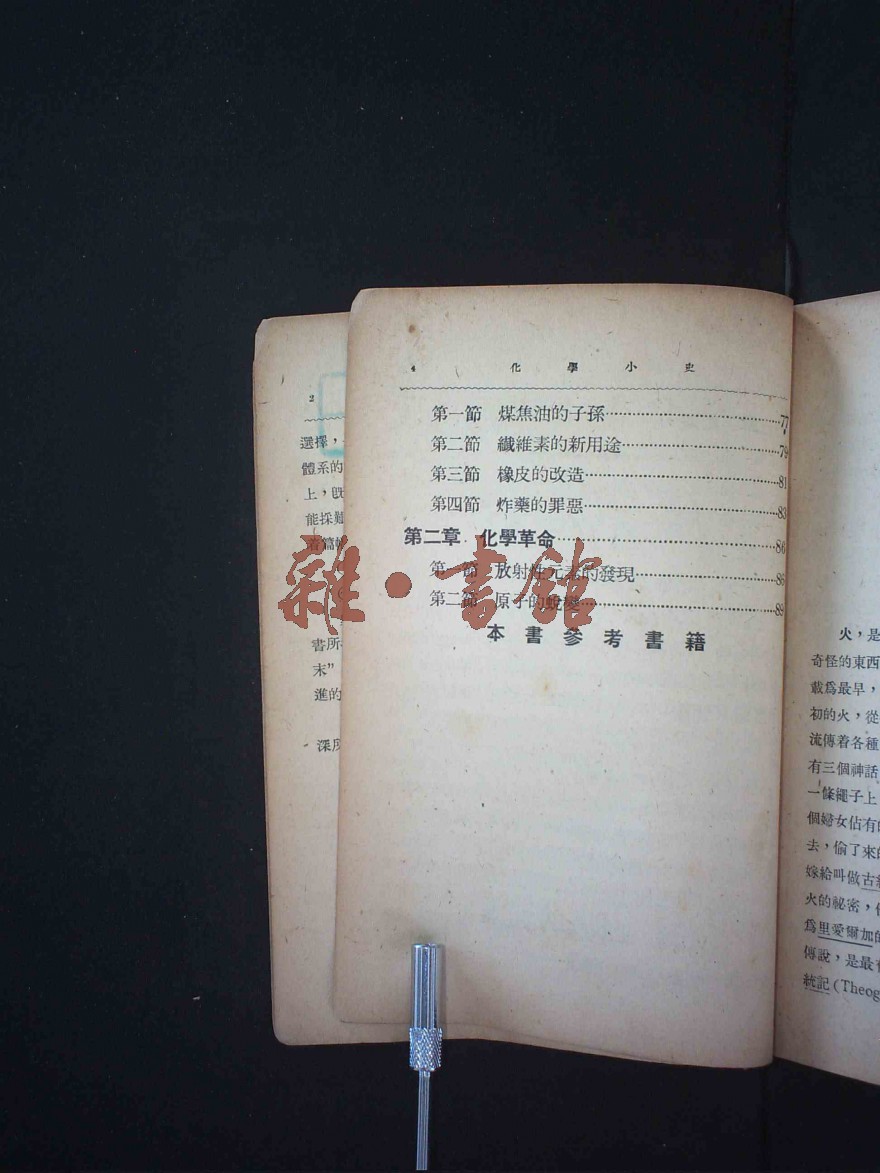 4 化學小史
第一節 煤焦油的子孫 77
第二節 纖維素的新用途 79
第三節 橡皮的改造 81
第四節 炸藥的罪惡 83
第二章 化學革命 86
第一節 放射性元素的發現 86
第二節 原子的蛻變 89
本書參考書籍
雜·書館
2
選擇，
體系的
上，既
能採
書所
末”
進的
火，是
奇怪的東西
載爲最早，
初的火，從
流傳着各種
有三個神話
一條繩子上
個婦女佔有
去，偷了來
嫁給叫做古
火的祕密，
爲里愛爾加
傳說，是最
統記(Theog